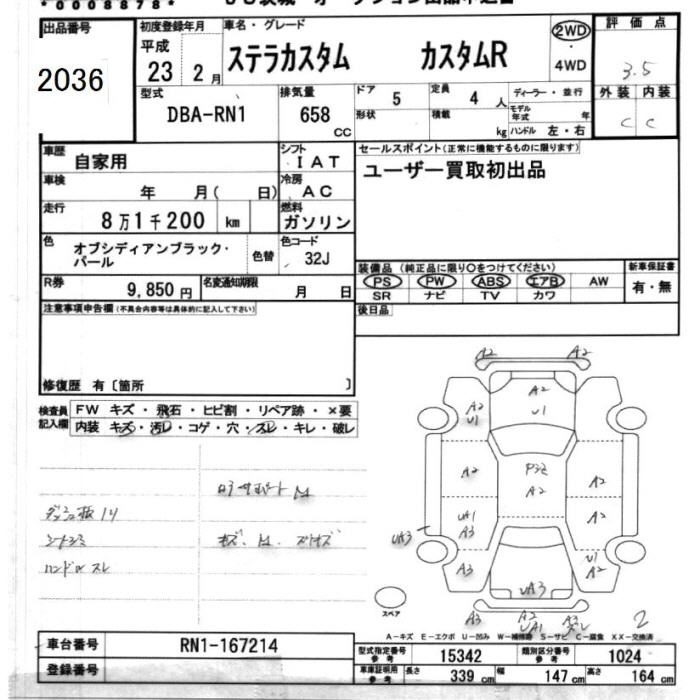 *0008878*
出品番号
2036
初度登録年月
平成
23 2月
車名・グレード
ステラカスタム カスタムR
2WD
・
4WD
評価点
3.5
外装 内装
C C
型式
DBA-RN1
排気量
658
CC
ドア
5
定員
4 人
ディーラー・並行
モデル年式 年
形状
積載
kg
ハンドル 左・右
車歴
自家用
シフト
IAT
セールスポイント(正常に機能するものに限ります)
ユーザー買取初出品
車検
年 月( 日)
冷房
AC
走行
8万1千200 km
燃料
ガソリン
色
オブシディアンブラック・
パール
色替
色コード
32J
装備品(純正品に限り○をつけてください)
PS PW ABS エアB AW
SR ナビ TV カワ
新車保証書
有・無
R券
9,850円
名変通知期限
月 日
後日品
注意事項申告欄(不具合内容等は具体的に記入して下さい)
修復歴 有〔箇所 〕
検査員
記入欄
FW キズ・飛石・ヒビ割・リペア跡・×要
内装 キズ・汚レ・コゲ・穴・スレ・キレ・破レ
A2 A2
A2
U1
A2
U1
A2
A2
A2
UA1
A3
A2
UA3
A3
U1
A2
UA3
A3
A2
UA1
2
スペア
A-キズ E-エクボ U-凹み W-補修跡 S-サビ C-腐食 XX-交換済
車台番号
RN1-167214
登録番号
型式指定番号
参考
15342
類別区分番号
参考
1024
車庫証明用
参考
長さ
339 cm
幅
147 cm
高さ
164 cm